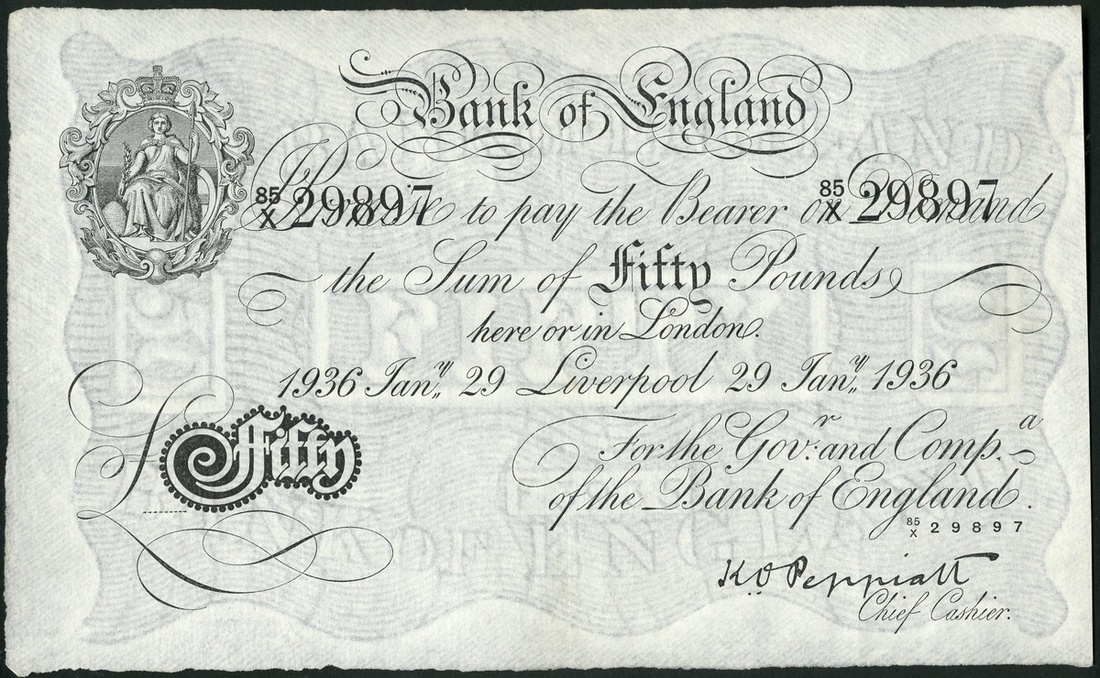 Bank of England
85/X 29897 I Promise to pay the Bearer on Demand 85/X 29897
the Sum of Fifty Pounds
here or in London.
1936 Jan.y 29 Liverpool 29 Jan.y 1936
£ Fifty
For the Gov.r and Comp.a
of the Bank of England.
85/X 29897
K.O. Peppiatt
Chief Cashier.